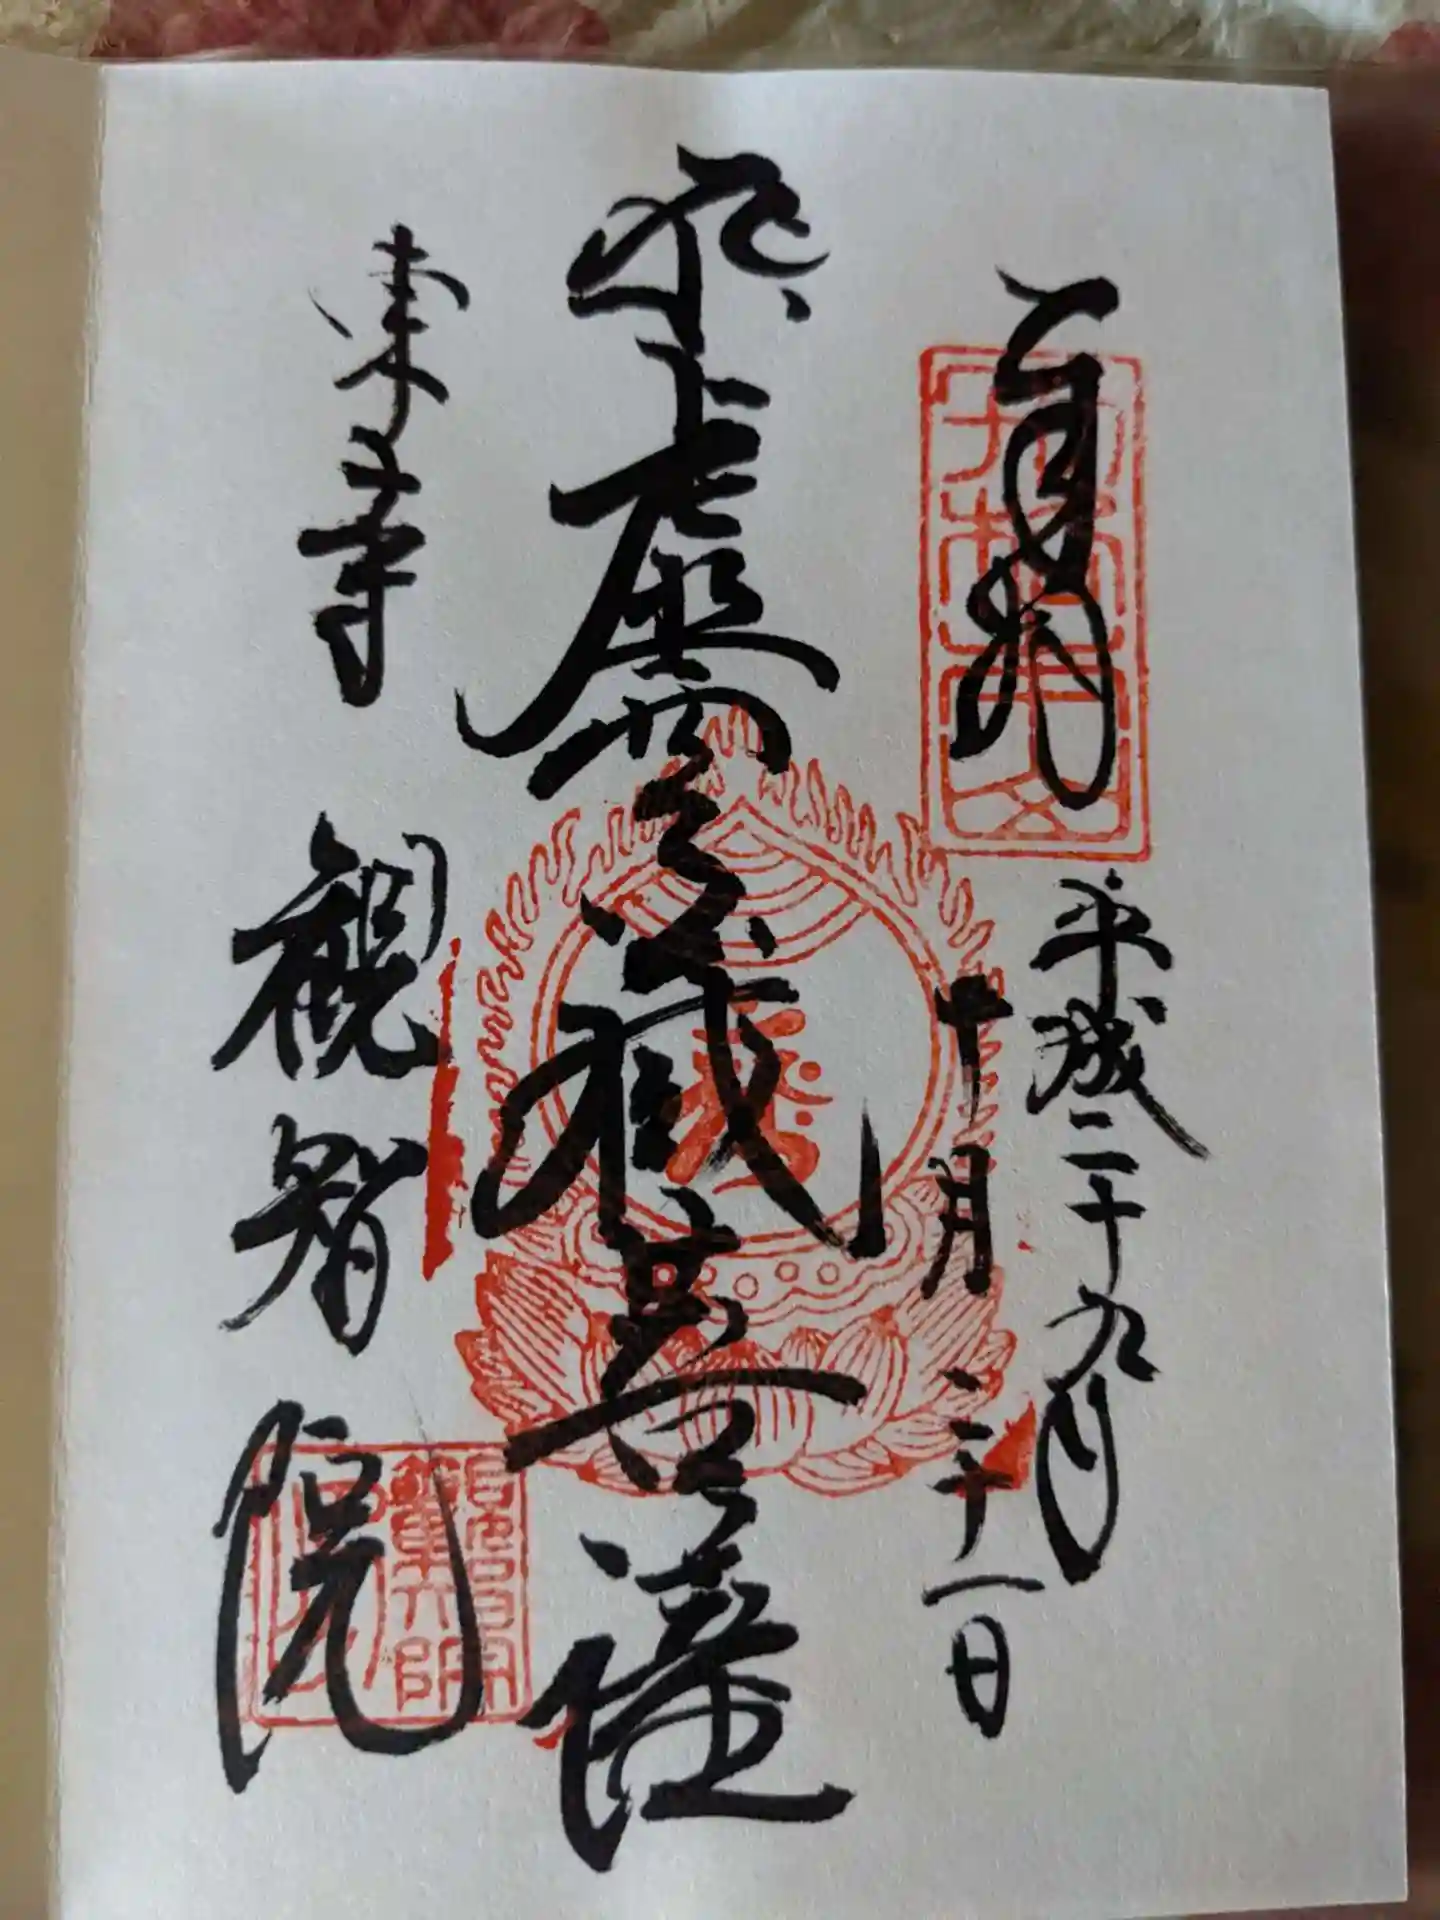 奉拝
平成二十九年
十月二十一日
虚空蔵菩薩
東寺 観智院